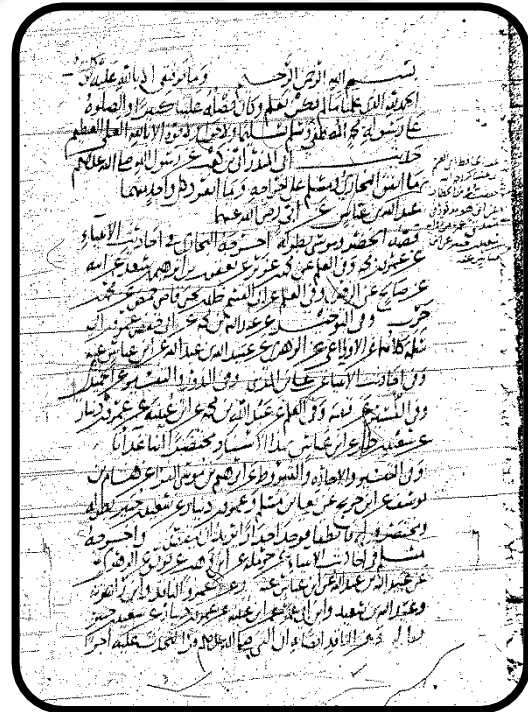 بسم الله الرحمن الرحيم وما توفيقي الا بالله عليه توكلت
الحمد لله الذي علمنا ما لم نكن نعلم وكان فضله علينا كبيرا والصلوة
على رسوله محمد المصطفى وسلم تسليما ولا حول ولا قوة الا بالله العلي العظيم
حديث ابي المنذر ابي بن كعب عن رسول الله صلى الله عليه وسلم
مما اتفق البخاري ومسلم على اخراجه وما انفرد به كل واحد منهما
عبد الله بن عباس عن ابي رضي الله عنهما
قصة الخضر وموسى بطوله اخرجه البخاري في احاديث الانبياء
عن عمرو بن محمد وفي العلم عن محمد بن غرير عن يعقوب بن ابرهيم بن سعد عن ابيه
عن صالح عن الزهري وفي العلم عن ابي القسم خالد بن خلي قاضي حمص عن محمد بن
حرب وفي التوحيد عن عبد الله بن محمد عن ابي حفص عمرو بن ابي
سلمة كلاهما عن الاوزاعي عن الزهري عن عبيد الله بن عبد الله عن ابن عباس عنه
وفي احاديث الانبياء عن علي بن المديني وفي النذور والتفسير عن الحميدي
وفي التفسير عن قتيبة وفي العلم عن عبد الله بن محمد عن ابن عيينة عن عمرو بن دينار
عن سعيد بن جبير عن ابن عباس بهذا الاسناد مختصرا آتنا غدانا
وفي التفسير والاجارة والشروط عن ابرهيم بن موسى الفرا عن هشام بن
يوسف عن ابن جريج عن يعلى بن مسلم وعمرو بن دينار عن سعيد بن جبير بطوله
ومختصرا فانطلقا فوجدا جدارا يريد ان ينقض واخرجه
مسلم في احاديث الانبياء عن حرملة عن ابن وهب عن يونس عن الزهري
عن عبيد الله بن عبد الله عن ابن عباس عنه وعن عمرو الناقد وابن راهويه
وعبيد الله بن سعيد وابن ابي عمر عن ابن عيينة عن عمرو بن دينار عن سعيد بن جبير
الناقد ايضا ان النبي صلى الله عليه قرا لتخذت عليه اجرا